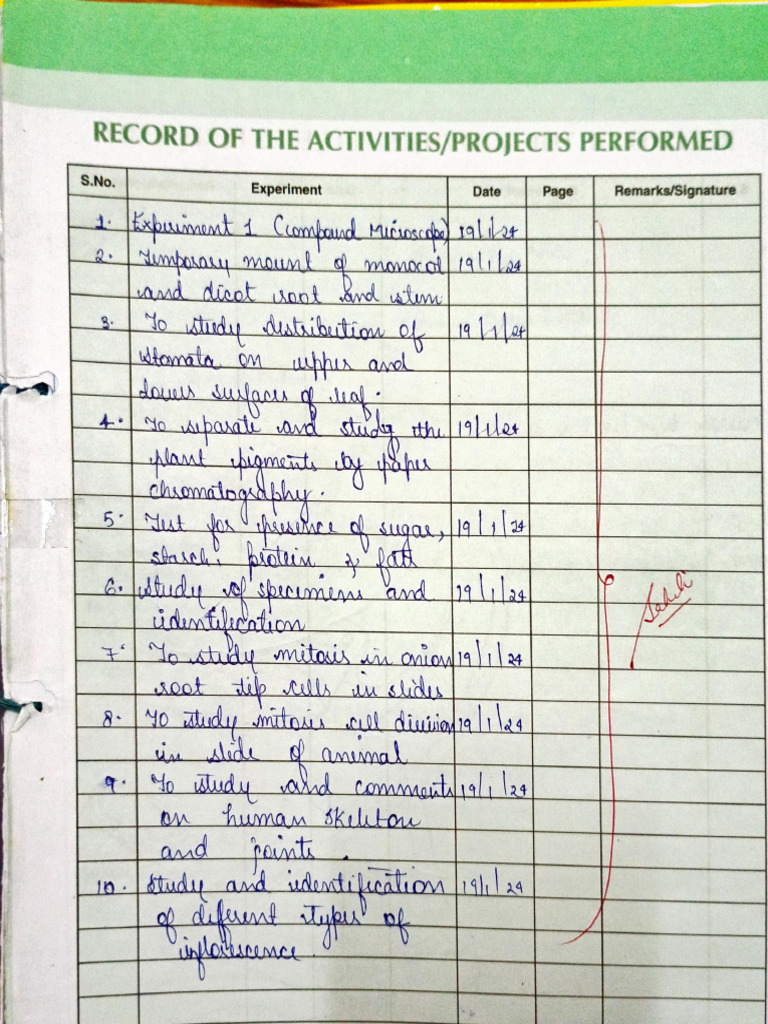 RECORD OF THE ACTIVITIES/PROJECTS PERFORMED
S.No. Experiment Date Page Remarks/Signature
1. Experiment 1 (Compound Microscope) 19/1/24
2. Temporary mount of monocot 19/1/24
and dicot root and stem
3. To study distribution of 19/1/24
stomata on upper and
lower surfaces of leaf.
4. To separate and study the 19/1/24
plant pigments by paper
chromatography.
5. Test for presence of sugar, 19/1/24
starch, protein & fats
6. study of specimens and 19/1/24
identification
7. To study mitosis in onion 19/1/24
root tip cells in slides
8. To study mitosis cell division 19/1/24
in slide of animal
9. To study and comments 19/1/24
on human skeleton
and joints.
10. Study and identification 19/1/24
of different types of
inflorescence.